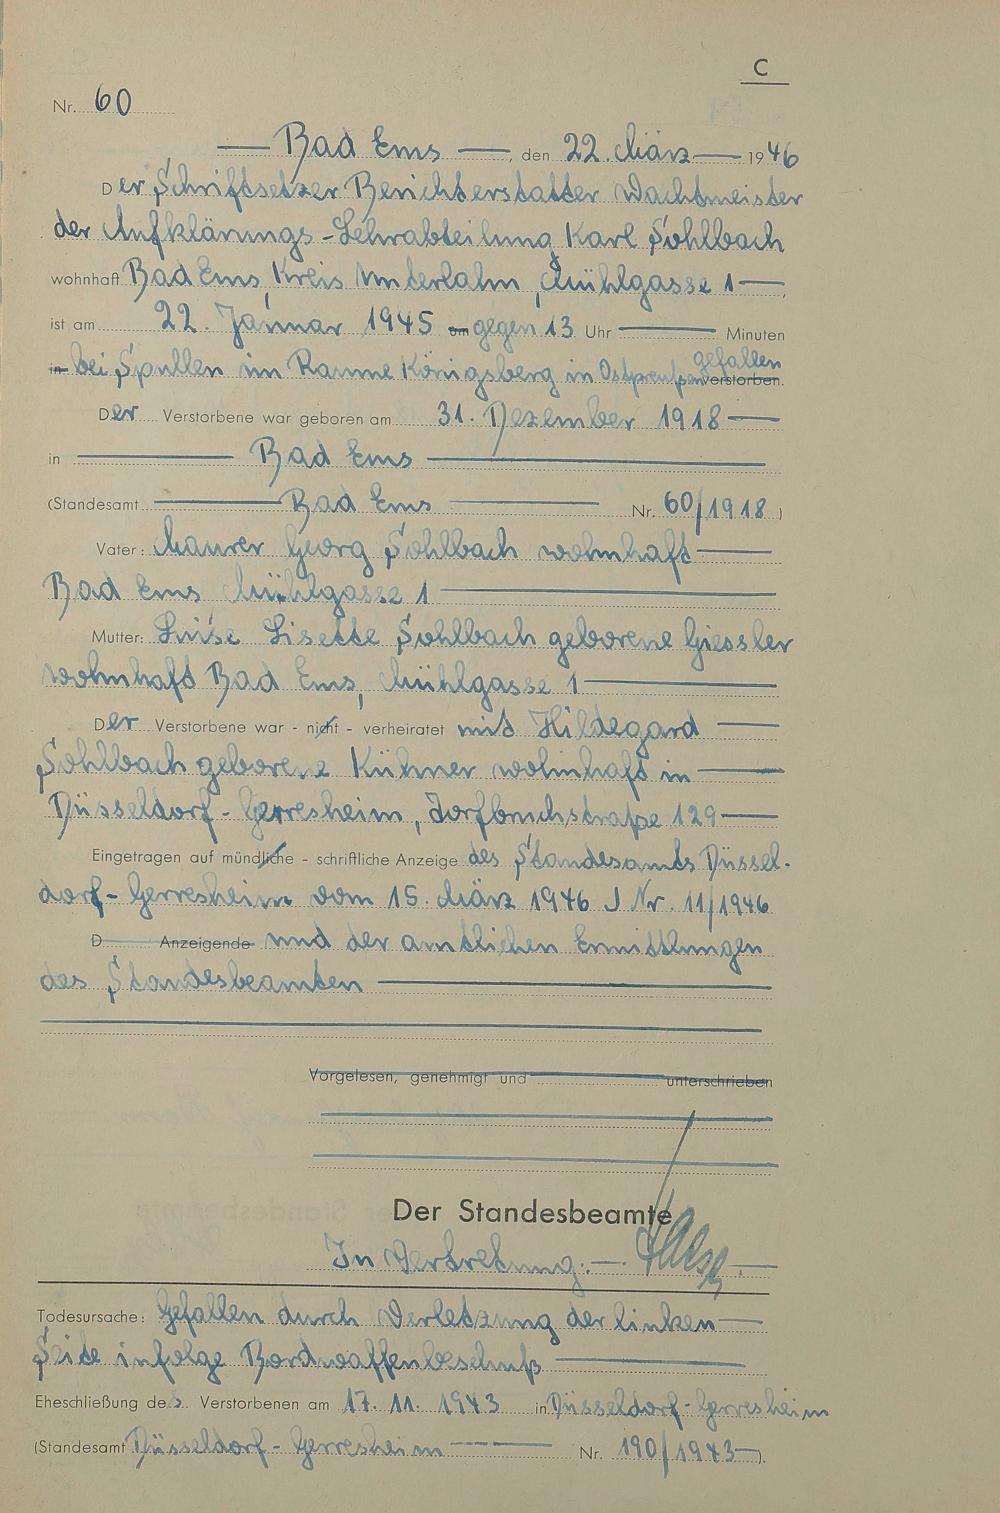 C
Nr. 60
Bad Ems, den 22. März 1946
Der Schriftsetzer Berichterstatter Wachtmeister
der Aufklärungs-Lehrabteilung Karl Sohlbach
wohnhaft Bad Ems, Kreis Unterlahn, Mühlgasse 1,
ist am 22. Januar 1945 um gegen 13 Uhr Minuten
gefallen
in bei Spullen im Raume Königsberg in Ostpreußen verstorben.
Der Verstorbene war geboren am 31. Dezember 1918
in Bad Ems
(Standesamt Bad Ems Nr. 60/1918)
Vater: Maurer Georg Sohlbach wohnhaft
Bad Ems Mühlgasse 1
Mutter: Luise Lisette Sohlbach geborene Giessler
wohnhaft Bad Ems, Mühlgasse 1
Der Verstorbene war - nicht - verheiratet mit Hildegard
Sohlbach geborene Kühner wohnhaft in
Düsseldorf-Gerresheim, Torfbruchstraße 129
Eingetragen auf mündliche - schriftliche Anzeige des Standesamts Düssel-
dorf-Gerresheim vom 15. März 1946 J Nr. 11/1946
D Anzeigende und der amtlichen Ermittlungen
des Standesbeamten
Vorgelesen, genehmigt und unterschrieben
Der Standesbeamte
In Vertretung:
Todesursache: Gefallen durch Verletzung der linken
Seite infolge Bordwaffenbeschuß
Eheschließung des Verstorbenen am 17. 11. 1943 in Düsseldorf-Gerresheim
(Standesamt Düsseldorf-Gerresheim Nr. 190/1943).